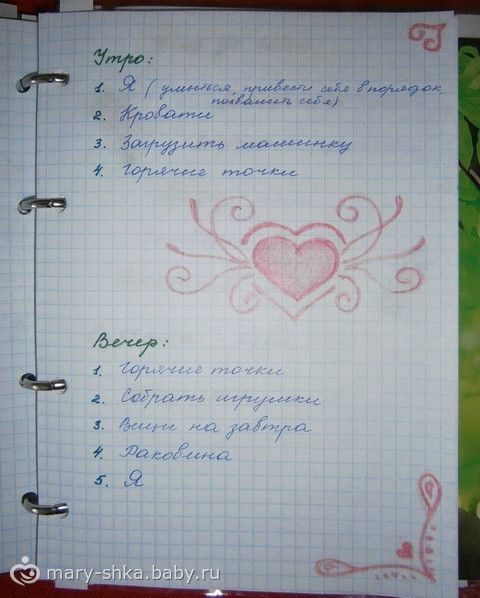 Утро:
1. Я (умыться, привести себя в порядок,
похвалить себя)
2. Кровати
3. Загрузить машинку
4. Горячие точки
Вечер:
1. Горячие точки
2. Собрать игрушки
3. Вещи на завтра
4. Раковина
5. Я
mary-shka.baby.ru